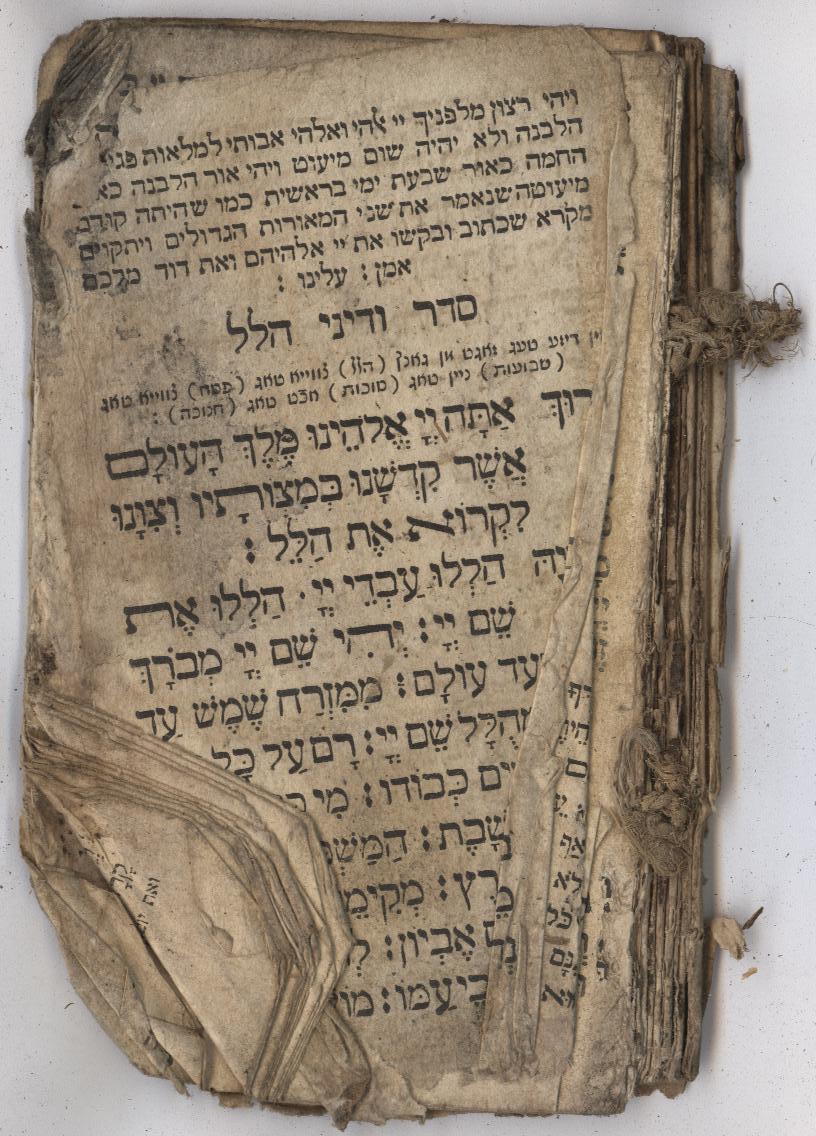 ויהי רצון מלפניך יי אהי ואלהי אבותי למלאות פגי
הלבנה ולא יהיה שום מיעוט ויהי אור הלבנה כא
החמה כאור שבעת ימי בראשית כמו שהיתה קודם
מיעוטה שנאמר את שני המאורות הגדולים ויתקוים
מקרא שכתוב ובקשו את יי אלהיהם ואת דוד מלכם
אמן : עלינו :
סדר ודיני הלל
דיזע טעג זאגט גאנץ (הלל) צווייא טאג (פסח) צווייא טאג
(שבועות) ניין טאג (סוכות) אכט טאג (חנוכה) :
רוּךְ אַתָּה יְיָ אֱלֹהֵינוּ מֶלֶךְ הָעוֹלָם
אֲשֶׁר קִדְשָׁנוּ בְּמִצְוֹתָיו וְצִוָּנוּ
לִקְרוֹא אֶת הַלֵּל :
יָהּ הַלְלוּ עַבְדֵי יְיָ . הַלְלוּ אֶת
שֵׁם יְיָ : יְהִי שֵׁם יְיָ מְבֹרָךְ
עַד עוֹלָם : מִמִּזְרַח שֶׁמֶשׁ עַד
מְהֻלָּל שֵׁם יְיָ : רָם עַל כָּל
ים כְּבוֹדוֹ : מִי
שָׁבֶת : הַמַּשְׁ
רֶץ : מְקִימִ
אֶבְיוֹן :
עַמּוֹ : מוֹ